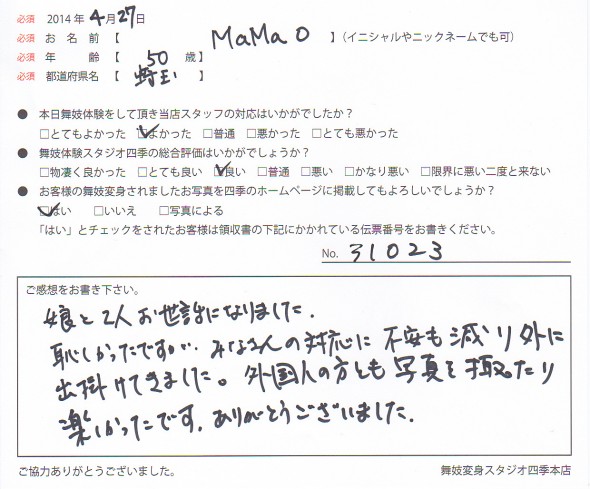 必須 2014年4月27日
必須 お名前【 MaMa O 】(イニシャルやニックネームでも可)
必須 年齢【 50 歳】
必須 都道府県名【 埼玉 】
● 本日舞妓体験をして頂き当店スタッフの対応はいかがでしたか?
□とてもよかった ☑よかった □普通 □悪かった □とても悪かった
● 舞妓体験スタジオ四季の総合評価はいかがでしょうか?
□物凄く良かった □とても良い ☑良い □普通 □悪い □かなり悪い □限界に悪い二度と来ない
● お客様の舞妓変身されましたお写真を四季のホームページに掲載してもよろしいでしょうか?
☑はい □いいえ □写真による
「はい」とチェックをされたお客様は領収書の下記にかかれている伝票番号をお書きください。
No. 31023
ご感想をお書き下さい。
娘と2人お世話になりました.
恥しかったですが、みなさんの対応に不安も減り外に
出掛けてきました。外国人の方とも写真を撮ったり
楽しかったです.ありがとうございました.
ご協力ありがとうございました。 舞妓変身スタジオ四季本店